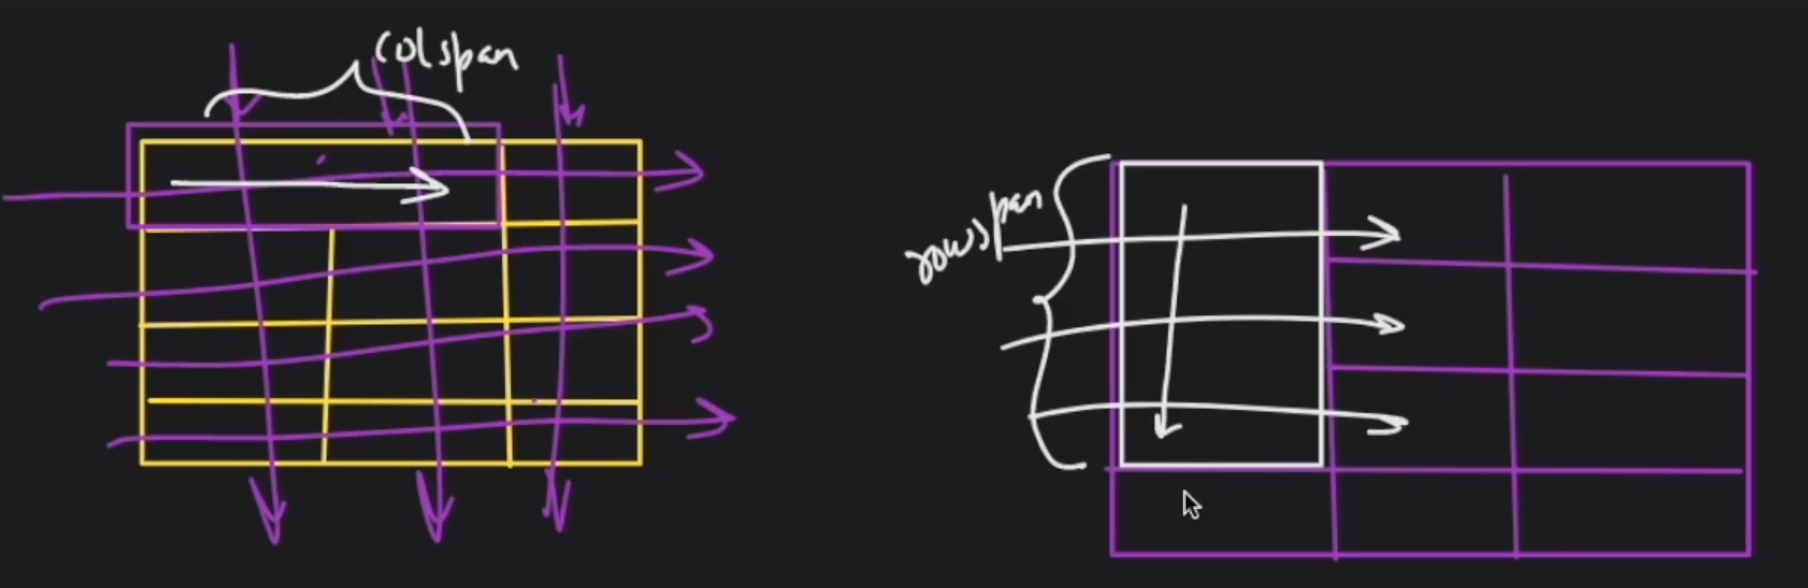 colspan
rowspan